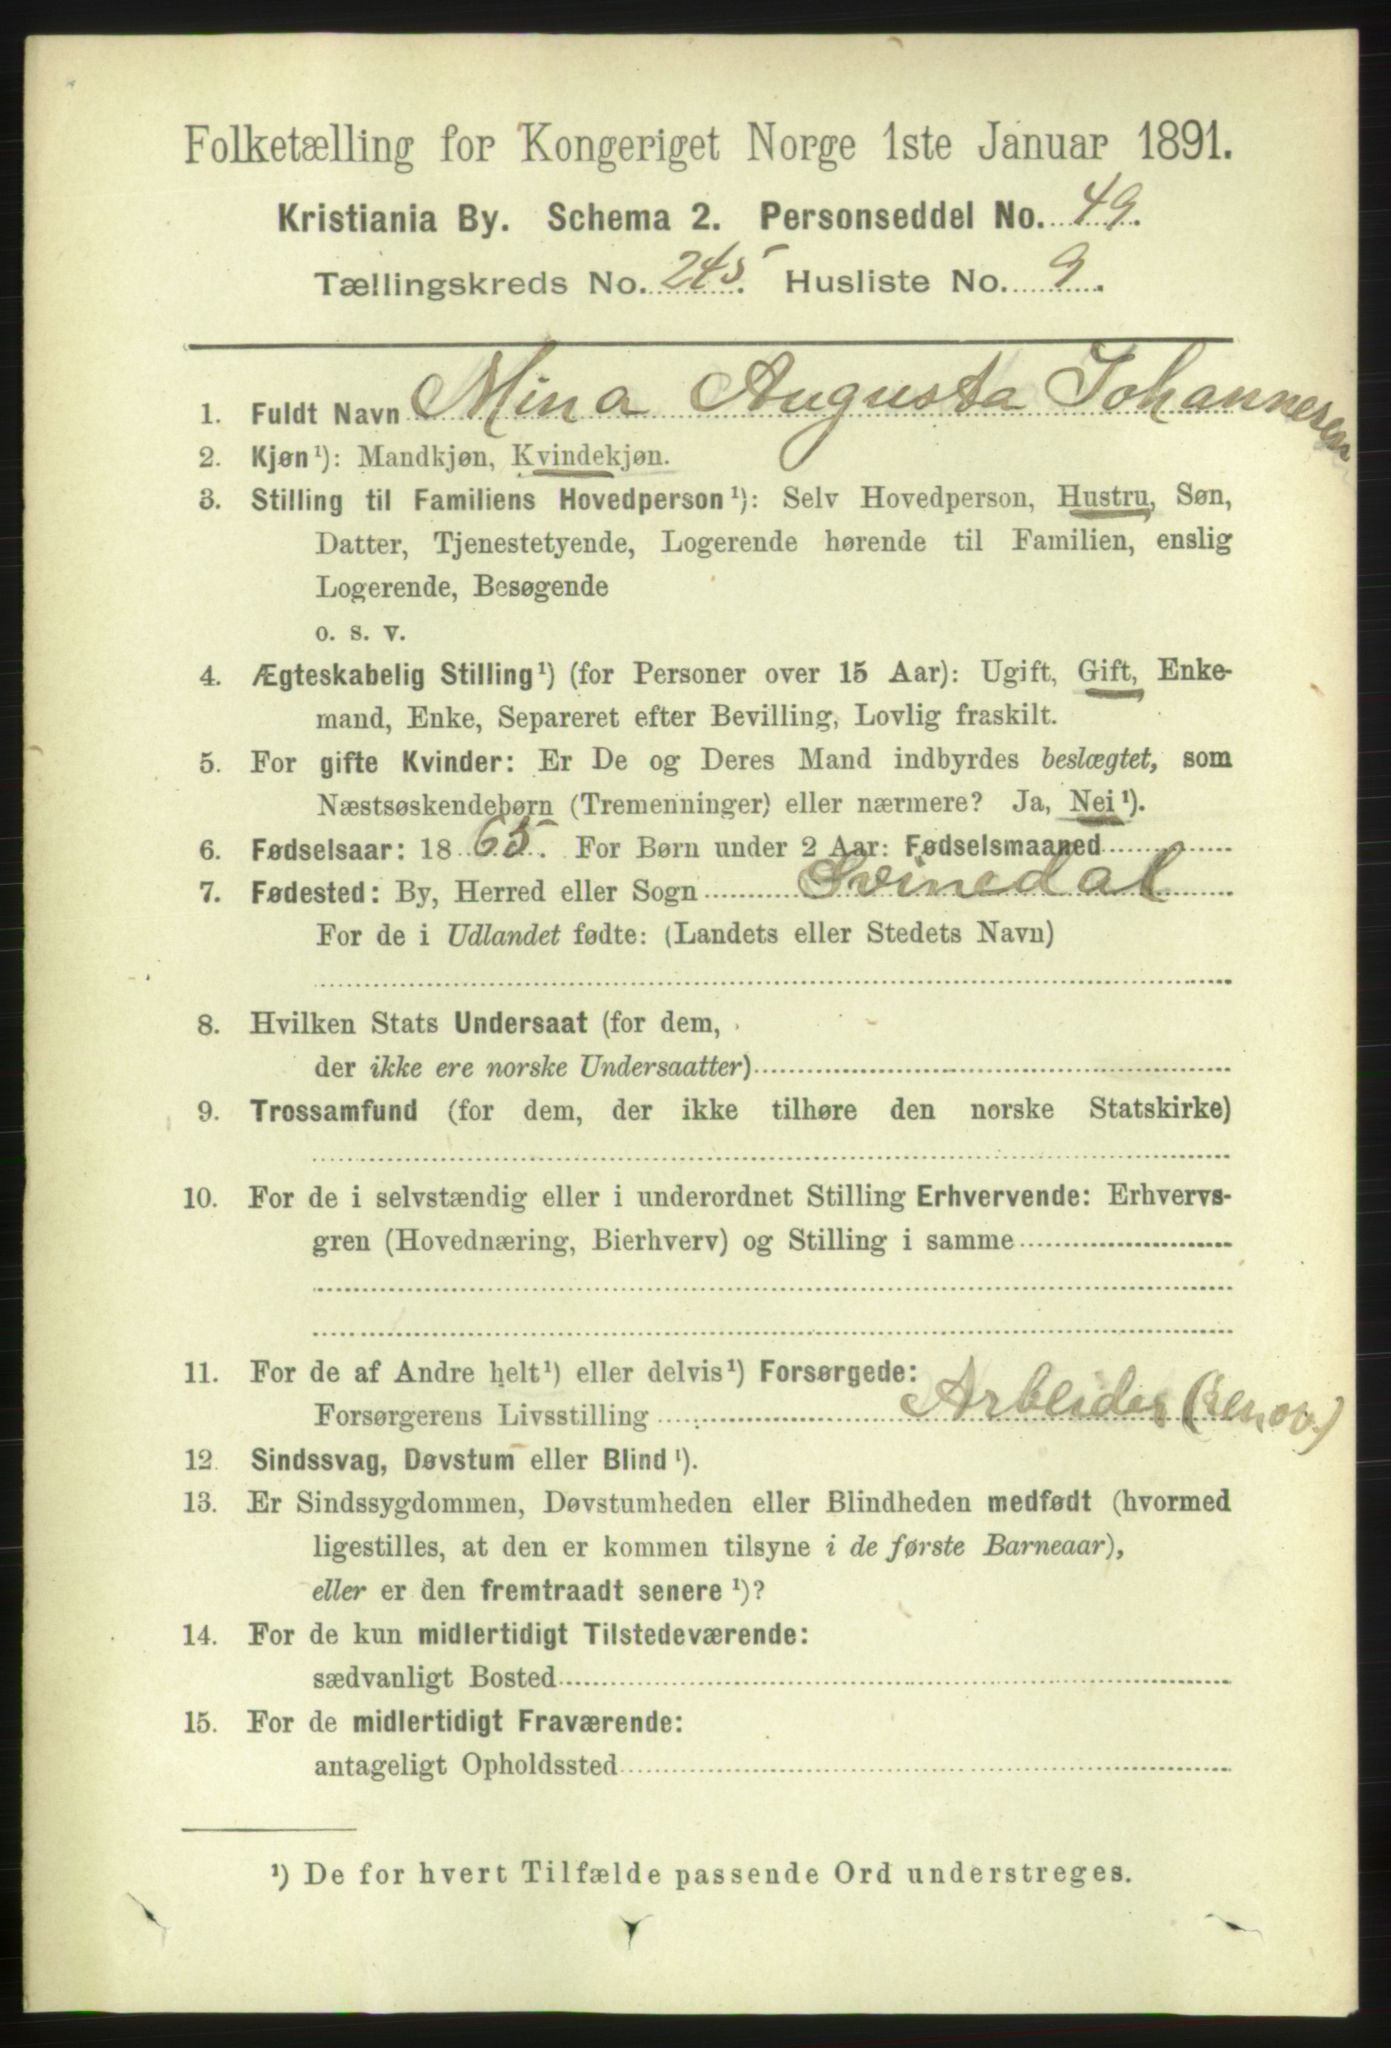 Folketælling for Kongeriget Norge 1ste Januar 1891.
Kristiania By. Schema 2. Personseddel No. 49.
Tællingskreds No. 245. Husliste No. 9.
1. Fuldt Navn Mina Augusta Johannesen
2. Kjøn¹): Mandkjøn, Kvindekjøn.
3. Stilling til Familiens Hovedperson¹): Selv Hovedperson, Hustru, Søn,
Datter, Tjenestetyende, Logerende hørende til Familien, enslig
Logerende, Besøgende
o. s. v.
4. Ægteskabelig Stilling¹) (for Personer over 15 Aar): Ugift, Gift, Enke-
mand, Enke, Separeret efter Bevilling, Lovlig fraskilt.
5. For gifte Kvinder: Er De og Deres Mand indbyrdes beslægtet, som
Næstsøskendebørn (Tremenninger) eller nærmere? Ja, Nei¹).
6. Fødselsaar: 1865. For Børn under 2 Aar: Fødselsmaaned
7. Fødested: By, Herred eller Sogn Svinedal
For de i Udlandet fødte: (Landets eller Stedets Navn)
8. Hvilken Stats Undersaat (for dem,
der ikke ere norske Undersaatter)
9. Trossamfund (for dem, der ikke tilhøre den norske Statskirke)
10. For de i selvstændig eller i underordnet Stilling Erhvervende: Erhvervs-
gren (Hovednæring, Bierhverv) og Stilling i samme
11. For de af Andre helt¹) eller delvis¹) Forsørgede:
Forsørgerens Livsstilling Arbeider (renov.)
12. Sindssvag, Døvstum eller Blind¹).
13. Er Sindssygdommen, Døvstumheden eller Blindheden medfødt (hvormed
ligestilles, at den er kommen tilsyne i de første Barneaar),
eller er den fremtraadt senere¹)?
14. For de kun midlertidigt Tilstedeværende:
sædvanligt Bosted
15. For de midlertidigt Fraværende:
antageligt Opholdssted
¹) De for hvert Tilfælde passende Ord understreges.